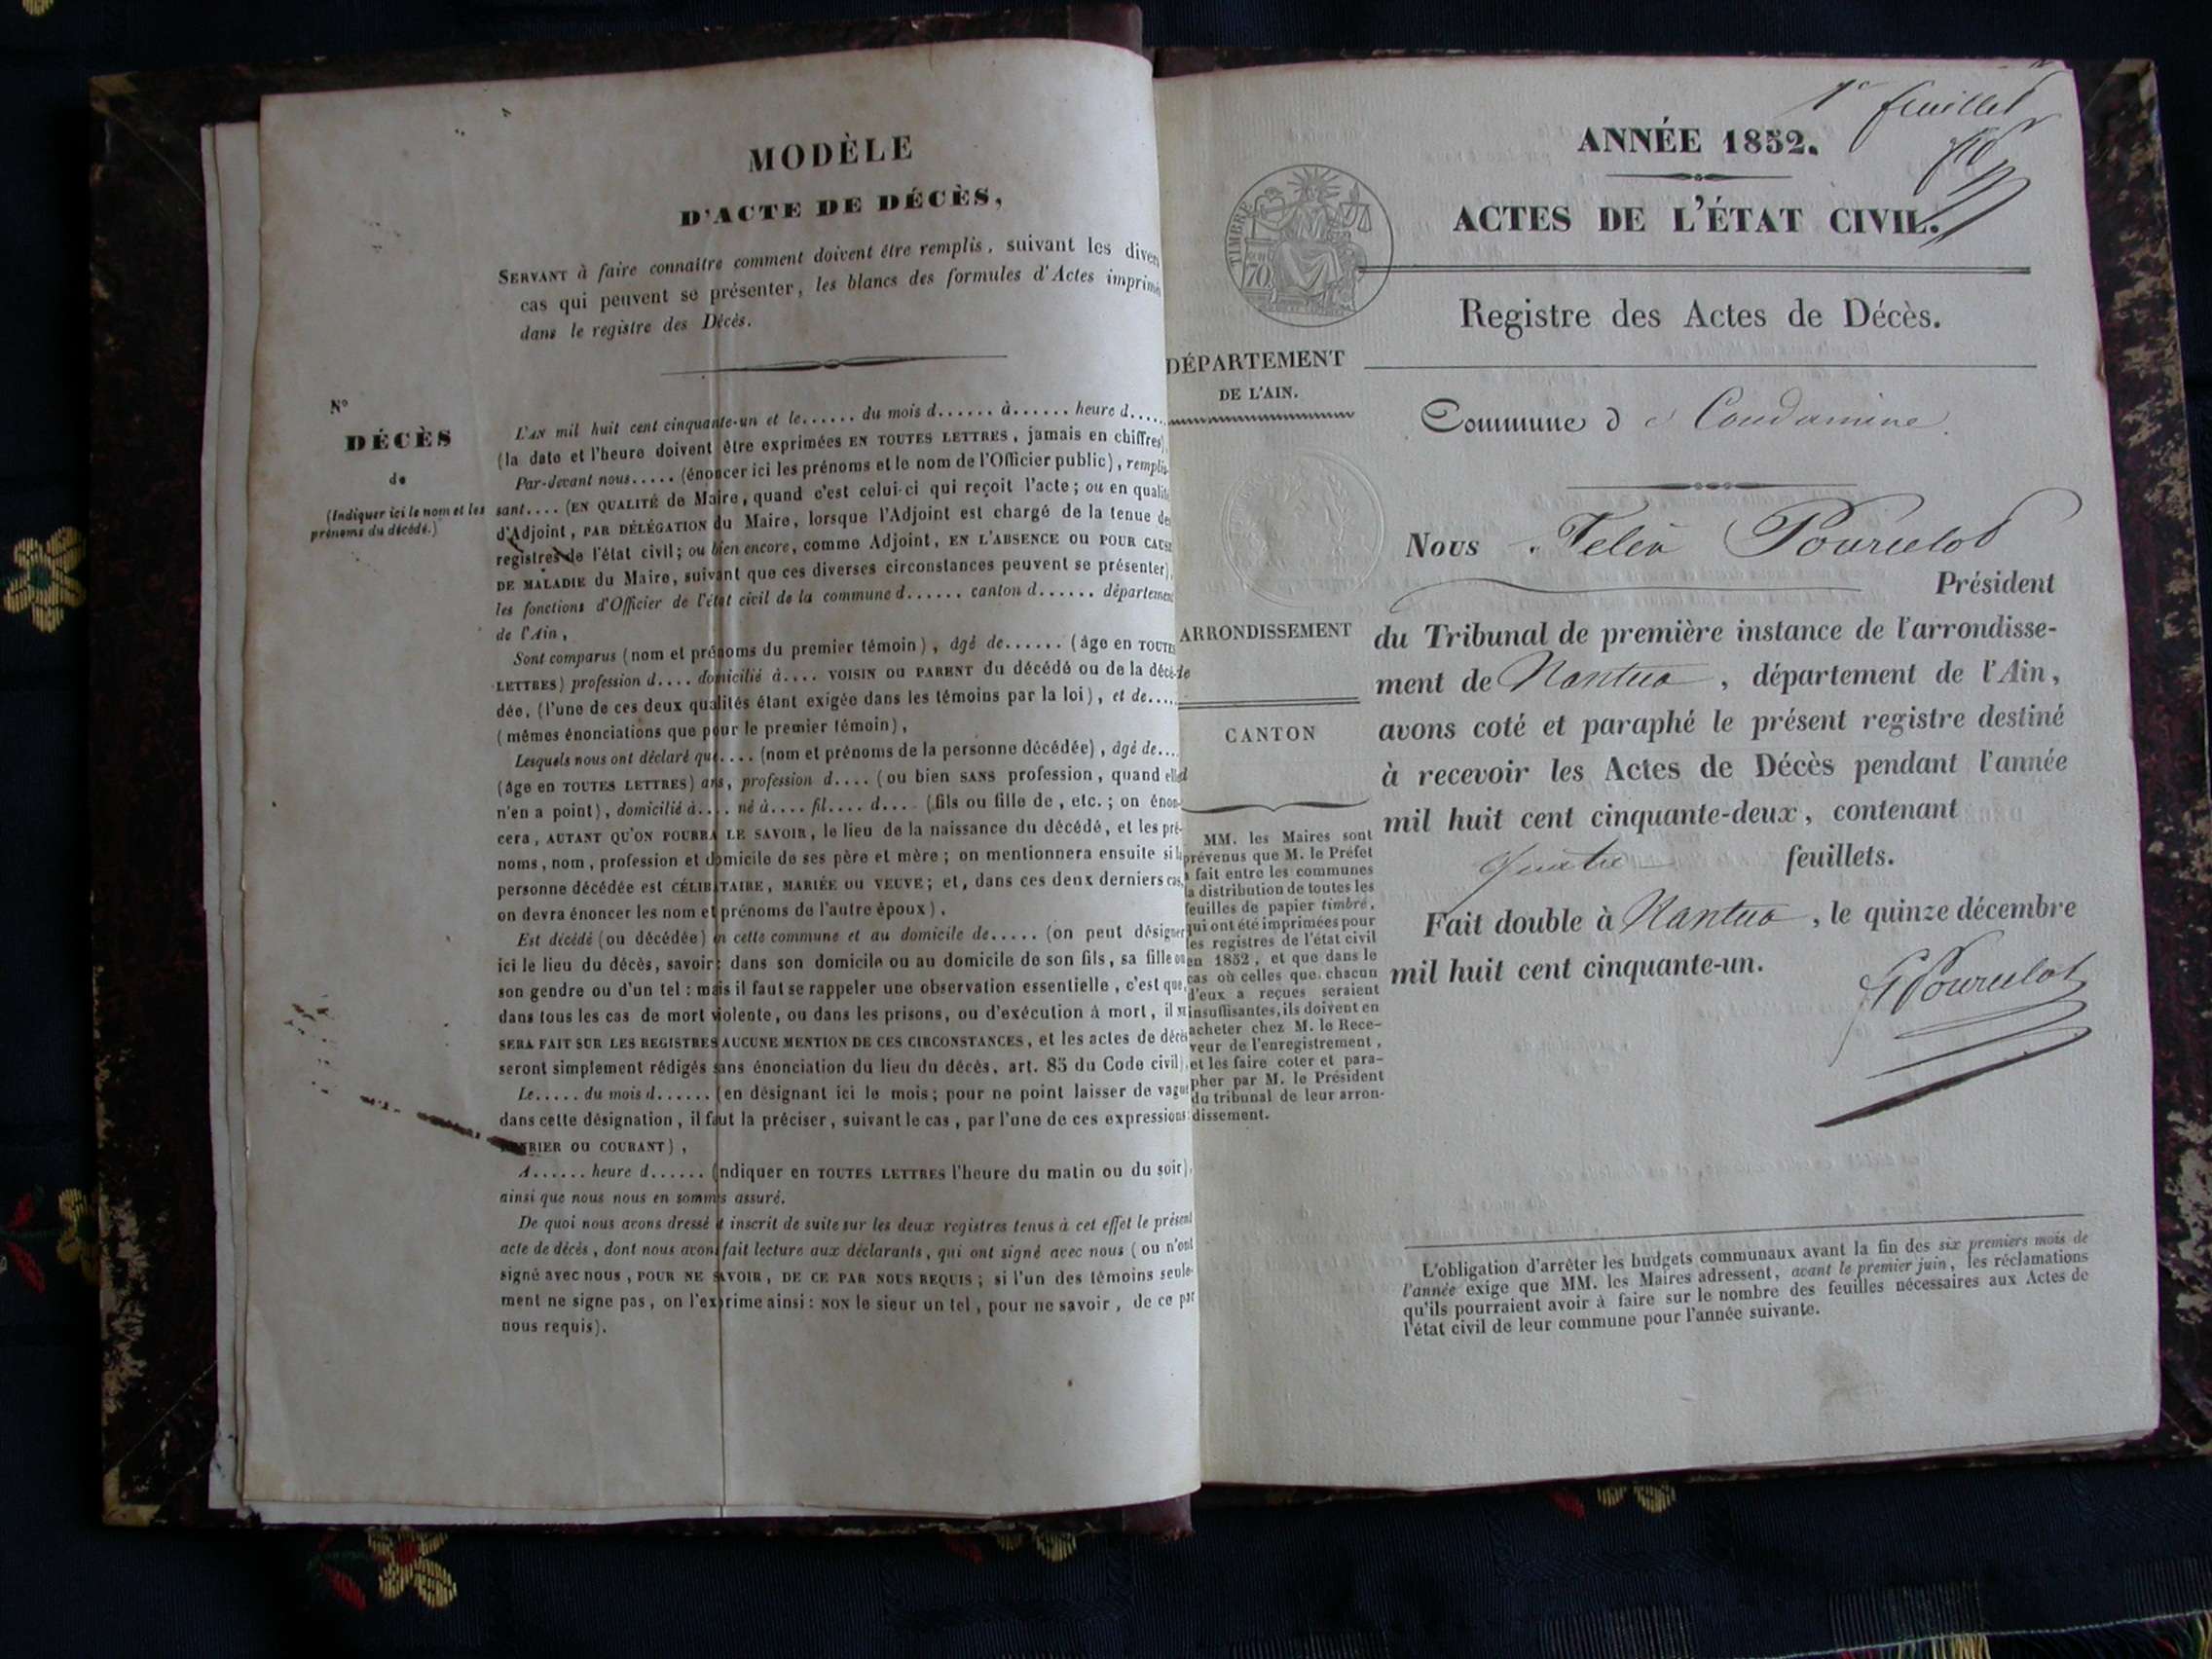 MODÈLE
D'ACTE DE DÉCÈS,
SERVANT à faire connaître comment doivent être remplis, suivant les divers
cas qui peuvent se présenter, les blancs des formules d'Actes imprimés
dans le registre des Décès.
N°
DÉCÈS
de
(Indiquer ici le nom et les
prénoms du décédé.)
L'AN mil huit cent cinquante-un et le...... du mois d...... à...... heure d.....
(la date et l'heure doivent être exprimées EN TOUTES LETTRES, jamais en chiffres)
Par-devant nous..... (énoncer ici les prénoms et le nom de l'Officier public), remplis-
sant.... (EN QUALITÉ de Maire, quand c'est celui-ci qui reçoit l'acte; ou en qualité
d'Adjoint, PAR DÉLÉGATION du Maire, lorsque l'Adjoint est chargé de la tenue des
registres de l'état civil; ou bien encore, comme Adjoint, EN L'ABSENCE OU POUR CAUSE
DE MALADIE du Maire, suivant que ces diverses circonstances peuvent se présenter),
les fonctions d'Officier de l'état civil de la commune d...... canton d...... département
de l'Ain,
Sont comparus (nom et prénoms du premier témoin), âgé de...... (âge en TOUTES
LETTRES) profession d.... domicilié à.... VOISIN OU PARENT du décédé ou de la décé-
dée, (l'une de ces deux qualités étant exigée dans les témoins par la loi), et de.....
(mêmes énonciations que pour le premier témoin),
Lesquels nous ont déclaré que.... (nom et prénoms de la personne décédée), âgé de....
(âge en TOUTES LETTRES) ans, profession d.... (ou bien SANS profession, quand elle
n'en a point), domicilié à.... né à.... fil.... d.... (fils ou fille de, etc.; on énon-
cera, AUTANT QU'ON POURRA LE SAVOIR, le lieu de la naissance du décédé, et les pré-
noms, nom, profession et domicile de ses père et mère; on mentionnera ensuite si la
personne décédée est CÉLIBATAIRE, MARIÉE OU VEUVE; et, dans ces deux derniers cas,
on devra énoncer les nom et prénoms de l'autre époux),
Est décédé (ou décédée) en cette commune et au domicile de..... (on peut désigner
ici le lieu du décès, savoir: dans son domicile ou au domicile de son fils, sa fille ou
son gendre ou d'un tel: mais il faut se rappeler une observation essentielle, c'est que,
dans tous les cas de mort violente, ou dans les prisons, ou d'exécution à mort, il NE
SERA FAIT SUR LES REGISTRES AUCUNE MENTION DE CES CIRCONSTANCES, et les actes de décès
seront simplement rédigés sans énonciation du lieu du décès, art. 85 du Code civil),
Le..... du mois d...... (en désignant ici le mois; pour ne point laisser de vague
dans cette désignation, il faut la préciser, suivant le cas, par l'une de ces expressions:
OU COURANT),
A...... heure d...... (indiquer en TOUTES LETTRES l'heure du matin ou du soir),
ainsi que nous nous en sommes assuré.
De quoi nous avons dressé et inscrit de suite sur les deux registres tenus à cet effet le présent
acte de décès, dont nous avons fait lecture aux déclarants, qui ont signé avec nous (ou n'ont
signé avec nous, POUR NE SAVOIR, DE CE PAR NOUS REQUIS; si l'un des témoins seule-
ment ne signe pas, on l'exprime ainsi: NON le sieur un tel, pour ne savoir, de ce par
nous requis).
1er feuillet
ANNÉE 1852.
ACTES DE L'ÉTAT CIVIL.
TIMBRE
70
Registre des Actes de Décès.
DÉPARTEMENT
DE L'AIN.
Commune d e Condamine
Nous Felix Pourcelot
Président
ARRONDISSEMENT
du Tribunal de première instance de l'arrondisse-
de
ment de Nantua, département de l'Ain,
CANTON
avons coté et paraphé le présent registre destiné
d
à recevoir les Actes de Décès pendant l'année
mil huit cent cinquante-deux, contenant
feuillets.
Fait double à Nantua, le quinze décembre
mil huit cent cinquante-un.
FPourcelot
MM. les Maires sont
prévenus que M. le Préfet
a fait entre les communes
la distribution de toutes les
feuilles de papier timbré,
qui ont été imprimées pour
les registres de l'état civil
en 1852, et que dans le
cas où celles que chacun
d'eux a reçues seraient
insuffisantes, ils doivent en
acheter chez M. le Rece-
veur de l'enregistrement,
et les faire coter et para-
pher par M. le Président
du tribunal de leur arron-
dissement.
L'obligation d'arrêter les budgets communaux avant la fin des six premiers mois de
l'année exige que MM. les Maires adressent, avant le premier juin, les réclamations
qu'ils pourraient avoir à faire sur le nombre des feuilles nécessaires aux Actes de
l'état civil de leur commune pour l'année suivante.